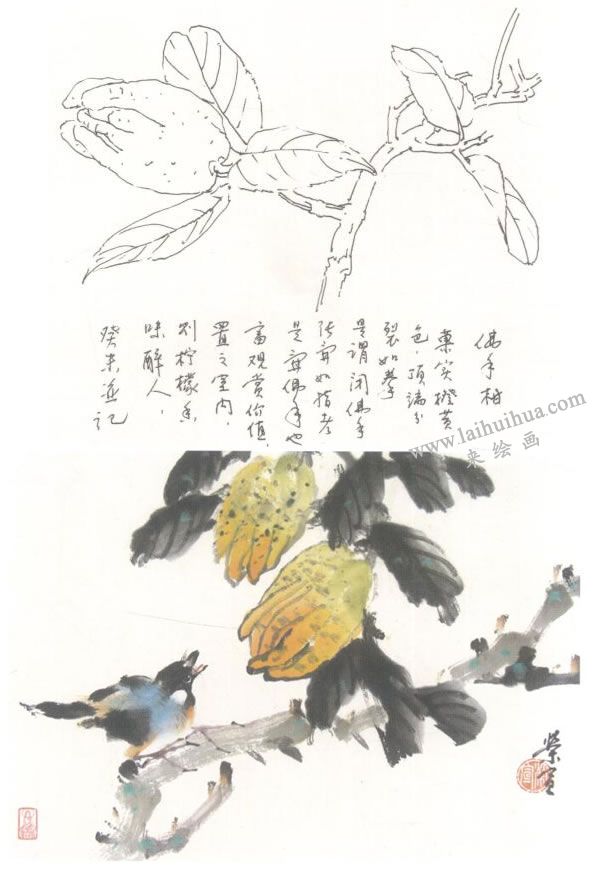 佛手柑
菓实橙黄
色，顶端分
裂如拳
是谓闭佛手
张開如指者
是開佛手也
富观赏价值，
置之室内，
则柠檬香
味醉人，
癸未 记
www.laihuihua.com
来绘画